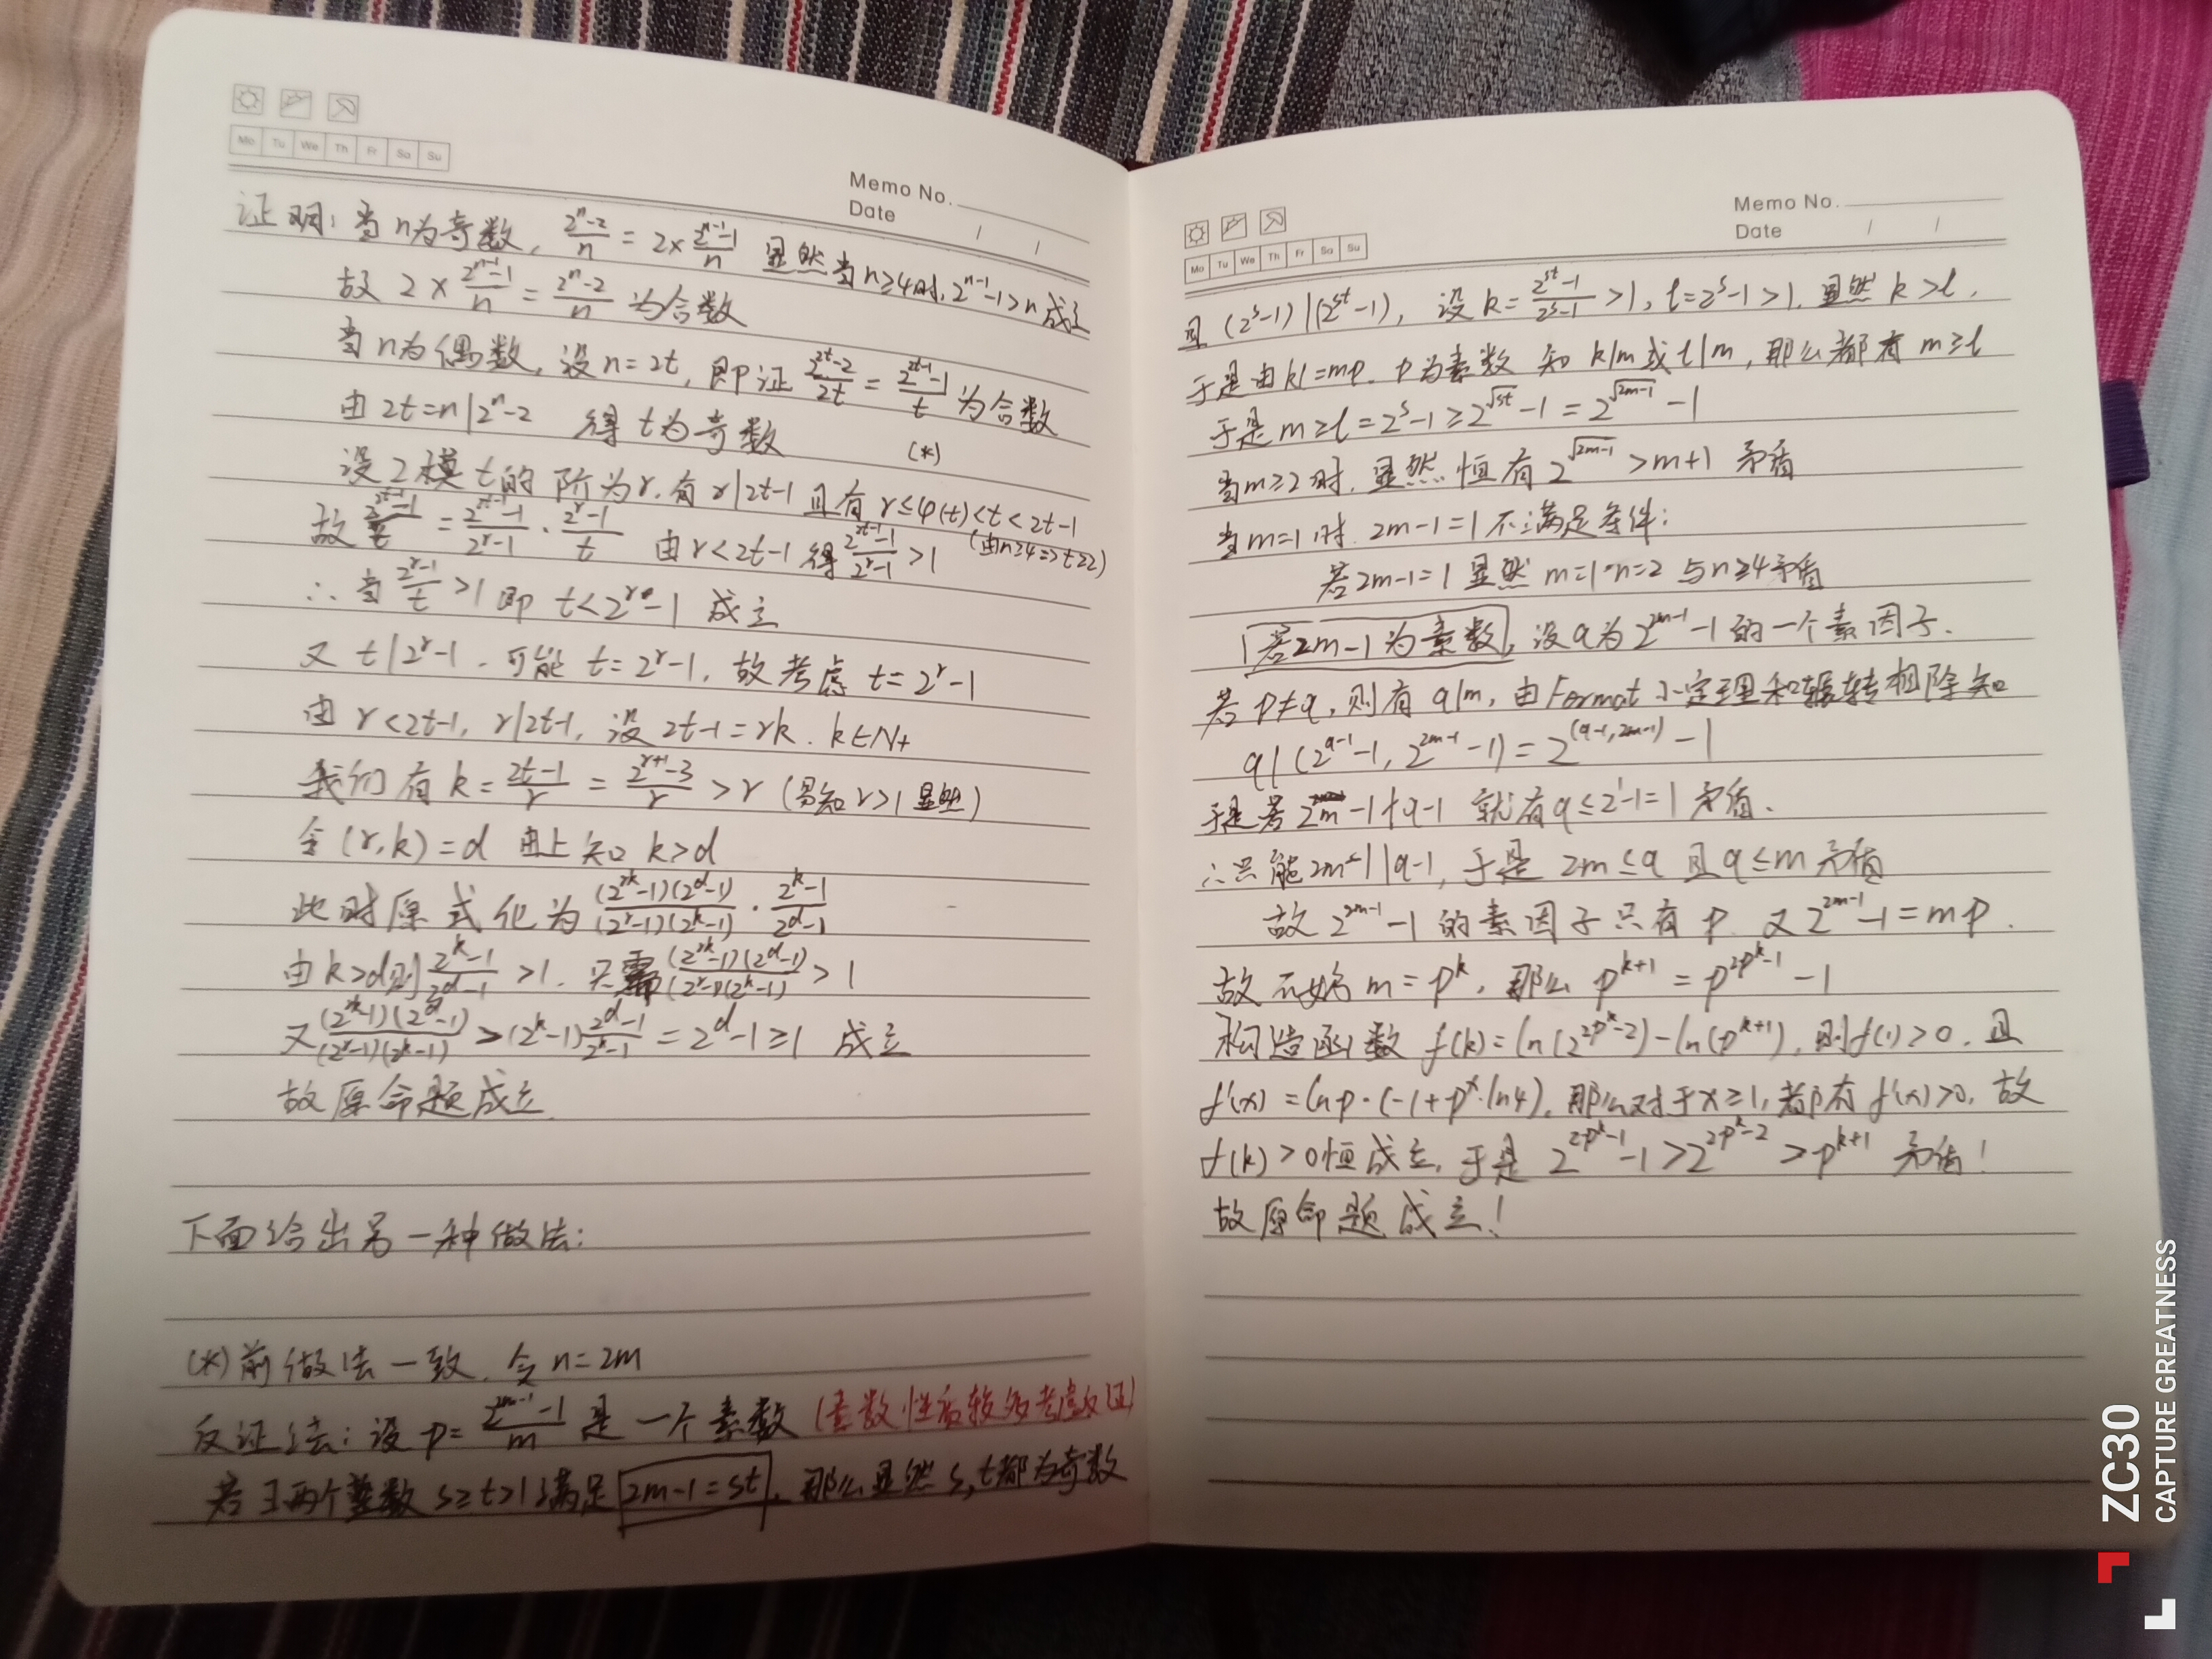 Mo Tu We Th Fr Sa Su
Memo No.
Date / /
证明：当n为奇数，(2^n-2)/n = 2×(2^(n-1)-1)/n 显然当n≥4时，2^(n-1)-1>n成立
故 2×(2^(n-1)-1)/n = (2^n-2)/n 为合数
当n为偶数，设n=2t，即证 (2^(2t)-2)/(2t) = (2^(2t-1)-1)/t 为合数
由2t=n|2^n-2 得t为奇数 (*)
设2模t的阶为r，有r|2t-1 且有r≤φ(t)<t<2t-1
(由n≥4=>t≥2)
故 (2^(2t-1)-1)/t = (2^(2t-1)-1)/(2^r-1) · (2^r-1)/t 由r<2t-1得 (2^(2t-1)-1)/(2^r-1) >1
∴当 (2^r-1)/t >1 即 t<2^r-1 成立
又 t|2^r-1，可能 t=2^r-1，故考虑 t=2^r-1
由r<2t-1，r|2t-1，设2t-1=rk，k∈N+
我们有 k=(2t-1)/r = (2^(r+1)-3)/r >r (易知r>1显然)
令(r,k)=d 由上知k>d
此时原式化为 (2^(rk)-1)(2^d-1)/((2^r-1)(2^k-1)) · (2^k-1)/(2^d-1)
由k>d则 (2^k-1)/(2^d-1) >1，只需 (2^(rk)-1)(2^d-1)/((2^r-1)(2^k-1)) >1
又 (2^(rk)-1)(2^d-1)/((2^r-1)(2^k-1)) >(2^k-1)(2^d-1)/(2^k-1) = 2^d-1≥1 成立
故原命题成立
下面给出另一种做法：
(*)前做法一致，令n=2m
反证法：设p=(2^(2m-1)-1)/m 是一个素数 (素数性质较多考虑反证)
若∃两个整数s≥t>1满足 2m-1=st，那么显然s,t都为奇数
Mo Tu We Th Fr Sa Su
Memo No.
Date / /
且 (2^s-1)|(2^(st)-1)，设k=(2^(st)-1)/(2^s-1) >1，l=2^s-1>1，显然k>l，
于是由kl=mp，p为素数 知k|m或l|m，那么都有m≥l
于是m≥l=2^s-1≥2^√(st)-1=2^√(2m-1)-1
当m≥2时，显然恒有2^√(2m-1)>m+1 矛盾
当m=1时，2m-1=1不满足条件：
若2m-1=1 显然m=1 n=2 与n≥4矛盾
若2m-1为素数，设q为2^(2m-1)-1的一个素因子．
若p≠q，则有q|m，由Format小定理和辗转相除知
q|(2^(q-1)-1, 2^(2m-1)-1)=2^((q-1,2m-1))-1
于是若2m-1∤q-1 就有q≤2^1-1=1 矛盾．
∴只能2m-1|q-1，于是 2m≤q 且q≤m 矛盾
故2^(2m-1)-1的素因子只有p，又2^(2m-1)-1=mp．
故不妨m=p^k，那么p^(k+1)=p^(2p^k-1)-1
构造函数f(k)=ln(2^(2p^k-2))-ln(p^(k+1))，则f(1)>0，且
f'(x)=lnp·(-1+p^x·ln4)，那么对于x≥1，都有f'(x)>0，故
f(k)>0恒成立，于是2^(2p^k-1)-1>2^(2p^k-2)>p^(k+1) 矛盾！
故原命题成立！
ZC30
CAPTURE GREATNESS